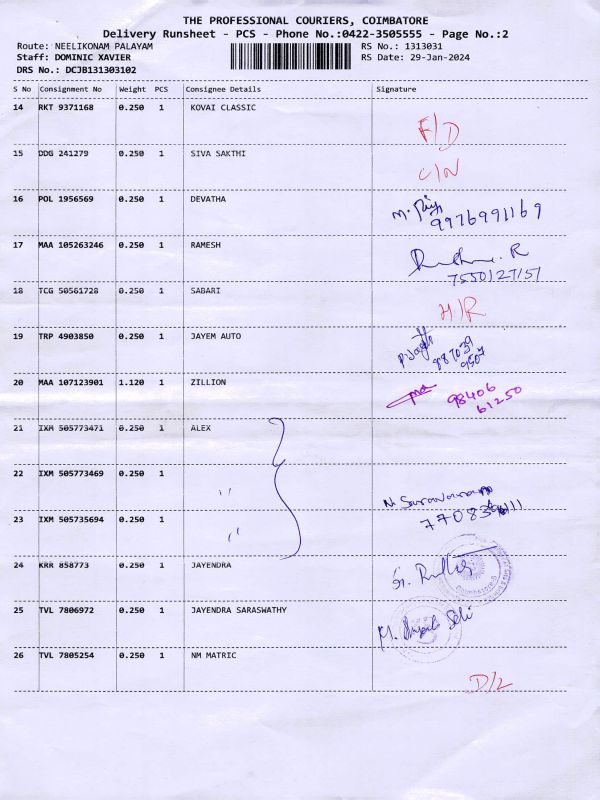 THE PROFESSIONAL COURIERS, COIMBATORE
Delivery Runsheet - PCS - Phone No.:0422-3505555 - Page No.:2
Route: NEELIKONAM PALAYAM RS No.: 1313031
Staff: DOMINIC XAVIER RS Date: 29-Jan-2024
DRS No.: DCJB131303102
S No Consignment No Weight PCS Consignee Details Signature
14 RKT 9371168 0.250 1 KOVAI CLASSIC
F/D
15 DDG 241279 0.250 1 SIVA SAKTHI
C/N
16 POL 1956569 0.250 1 DEVATHA
9976991169
17 MAA 105263246 0.250 1 RAMESH
7550127157
18 TCG 50561728 0.250 1 SABARI
H/R
19 TRP 4903850 0.250 1 JAYEM AUTO
20 MAA 107123901 1.120 1 ZILLION
98406
61250
21 IXM 505773471 0.250 1 ALEX
22 IXM 505773469 0.250 1 "
N. Saravanan
23 IXM 505735694 0.250 1 "
24 KRR 858773 0.250 1 JAYENDRA
25 TVL 7806972 0.250 1 JAYENDRA SARASWATHY
26 TVL 7805254 0.250 1 NM MATRIC
D/L